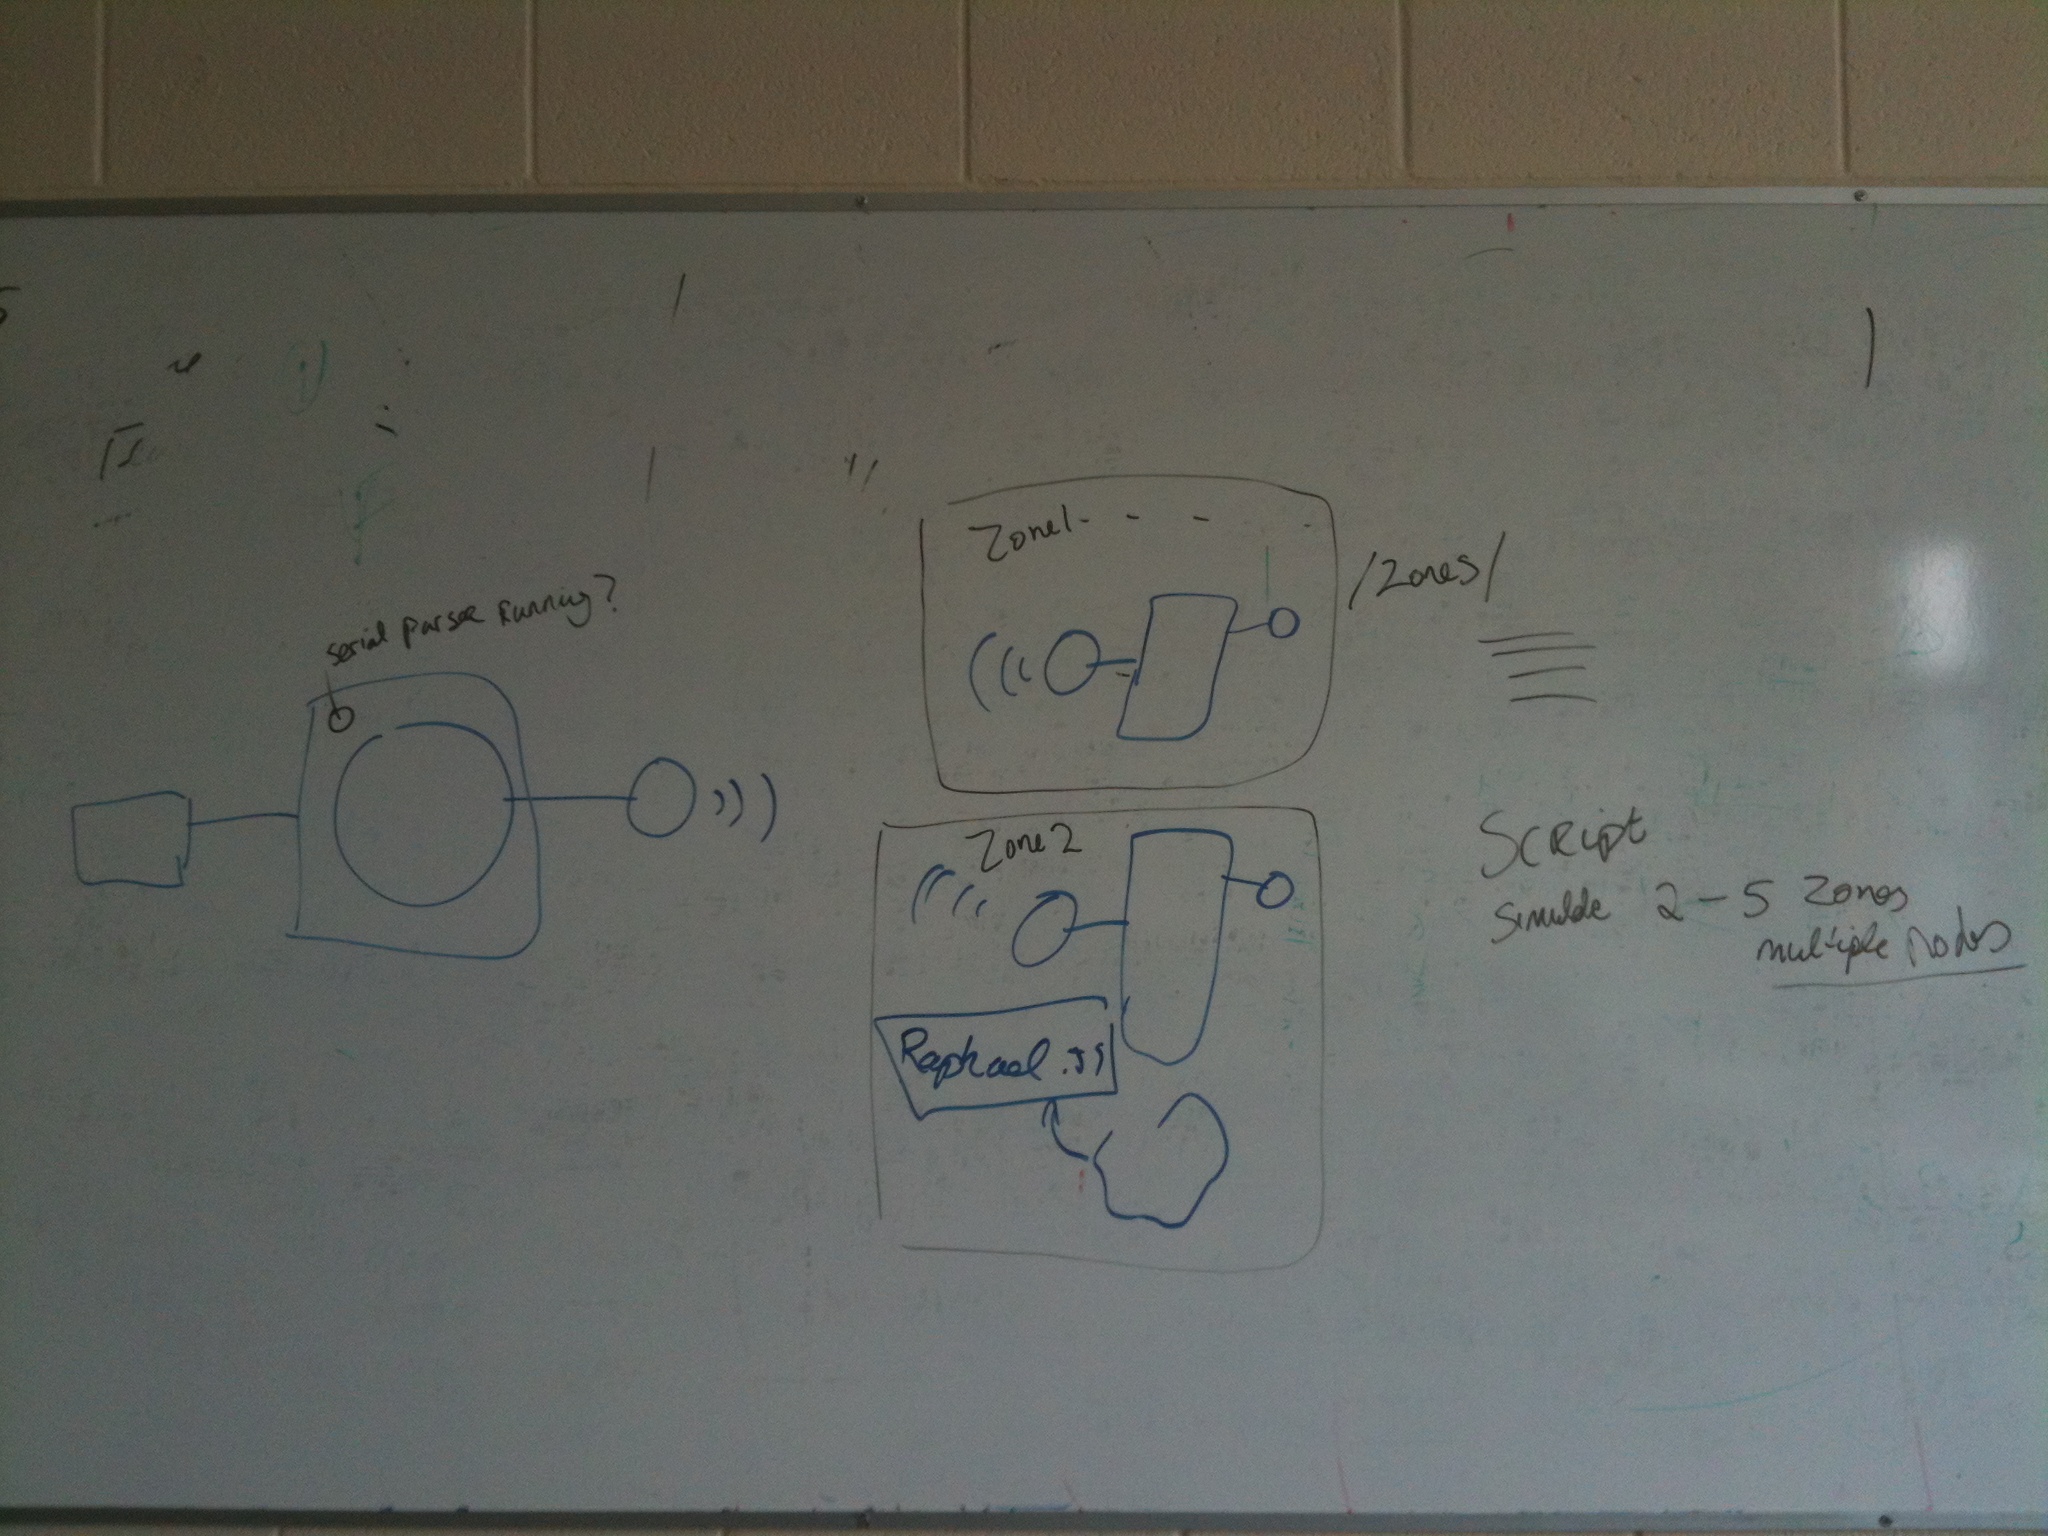 serial parser running?
Zone1- - -
/Zones/
Zone 2
Raphael.js
Script
simulate 2-5 zones
multiple nodes